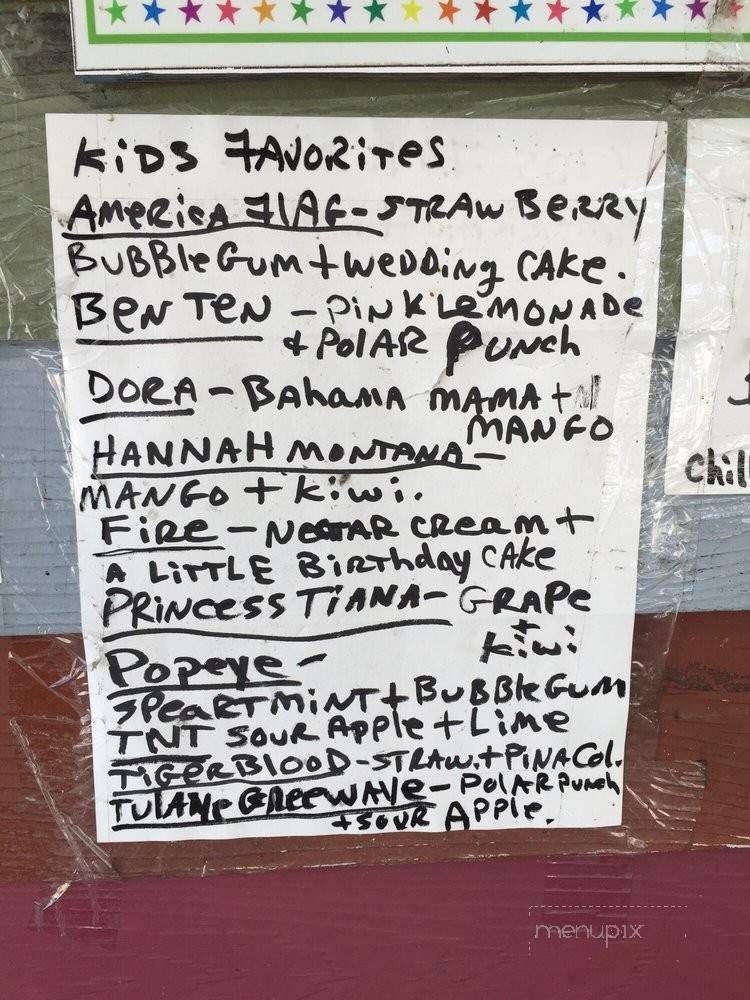 KiDS FAVORiTeS
AMeRicA FlAG- STRAW BeRRY
BuBBleGuM + weDDing CAKe.
BeN TeN - PiNK LeMONADe
& PolAR PuNch
DORA - BAhAMA MAMA +
MANGO
HANNAH MONTANA -
MANGO + Kiwi.
FiRe - NeCTAR CReAM +
A LiTTLE BiRThday CAKe
PRiNCeSS TiANA - GRAPe
+
Kiwi
Popeye -
SPeARTMiNT + BuBBleGuM
TNT SOuR Apple + Lime
TiGeRBlOOD - STRAW. + PiNA Col.
TulANe GReeWAVe - PolAR Punch
+ SOuR APPle.
chil
menupix